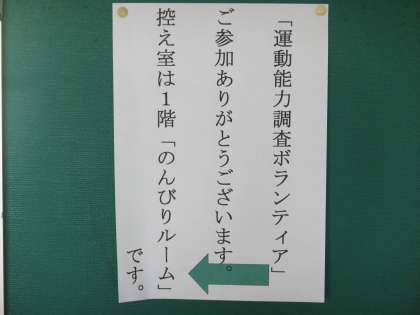 「運動能力調査ボランティア」
ご参加ありがとうございます。
控え室は１階「のんびりルーム」
です。